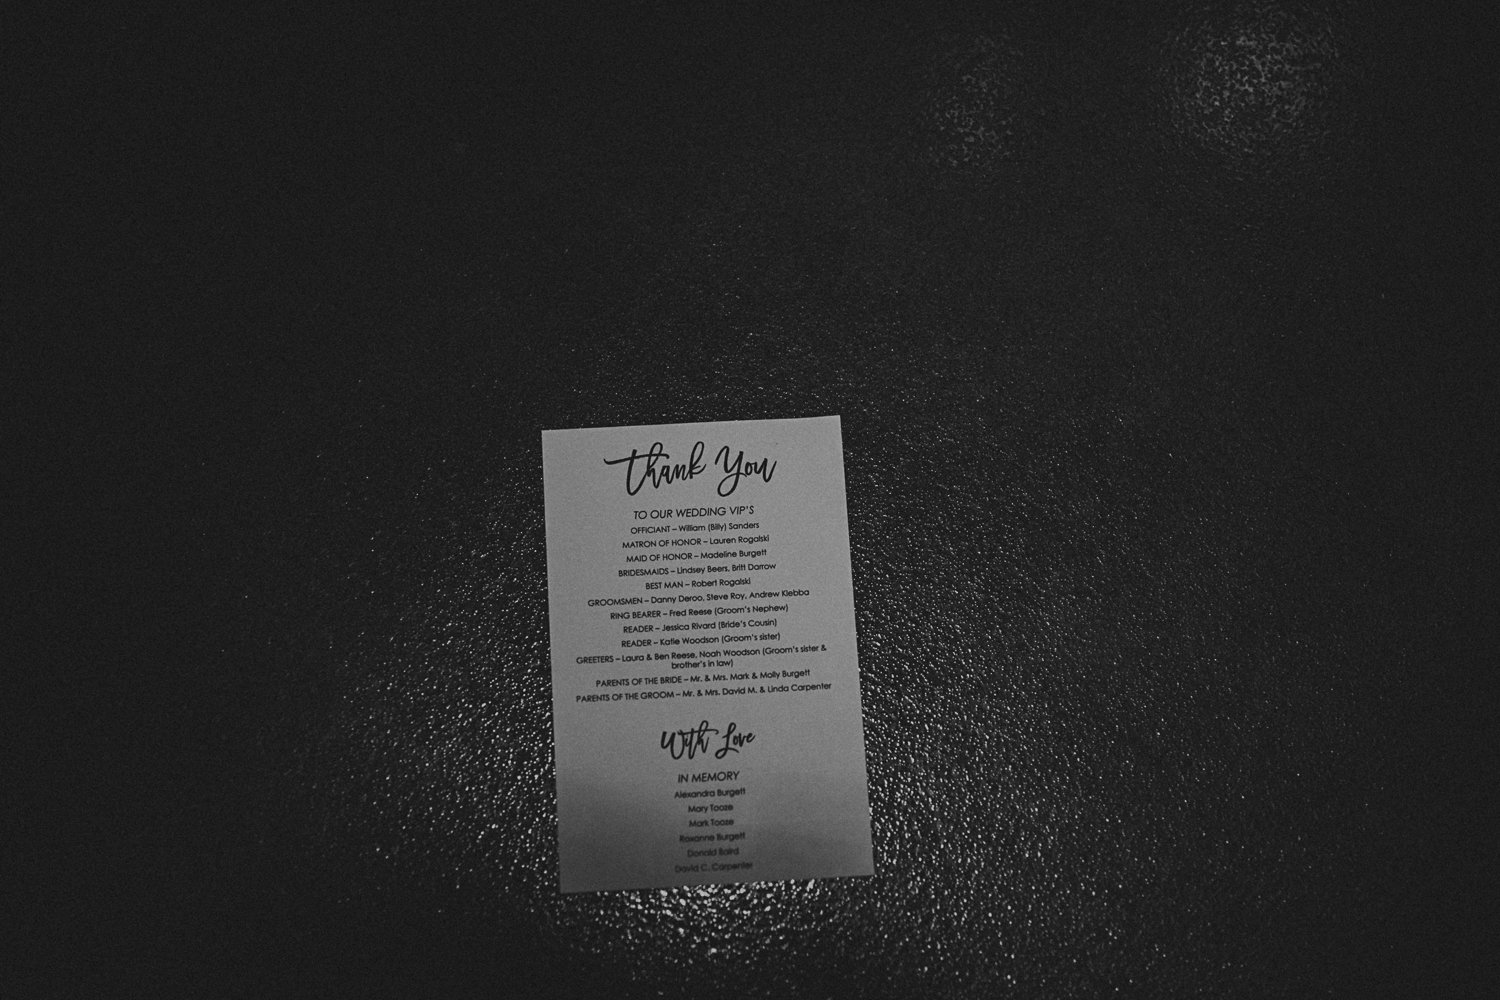 Thank You
TO OUR WEDDING VIP'S
OFFICIANT – William (Billy) Sanders
MATRON OF HONOR – Lauren Rogalski
MAID OF HONOR – Madeline Burgett
BRIDESMAIDS – Lindsey Beers, Britt Darrow
BEST MAN – Robert Rogalski
GROOMSMEN – Danny Deroo, Steve Roy, Andrew Klebba
RING BEARER – Fred Reese (Groom's Nephew)
READER – Jessica Rivard (Bride's Cousin)
READER – Katie Woodson (Groom's sister)
GREETERS – Laura & Ben Reese, Noah Woodson (Groom's sister &
brother's in law)
PARENTS OF THE BRIDE – Mr. & Mrs. Mark & Molly Burgett
PARENTS OF THE GROOM – Mr. & Mrs. David M. & Linda Carpenter
With Love
IN MEMORY
Alexandra Burgett
Mary Tooze
Mark Tooze
Roxanne Burgett
Donald Baird
David C. Carpenter